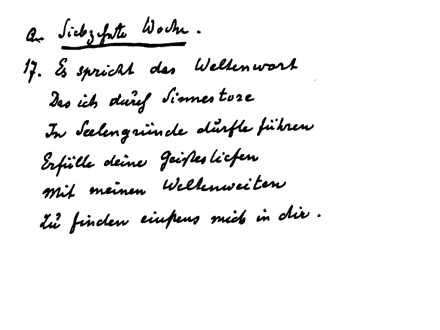 Q. Siebzehnte Woche.
17. Es spricht das Weltenwort
Das ich durch Sinnestore
In Seelengründe durfte führen
Erfülle deine Geistestiefen
Mit meinen Weltenweiten
Zu finden einstens mich in dir.